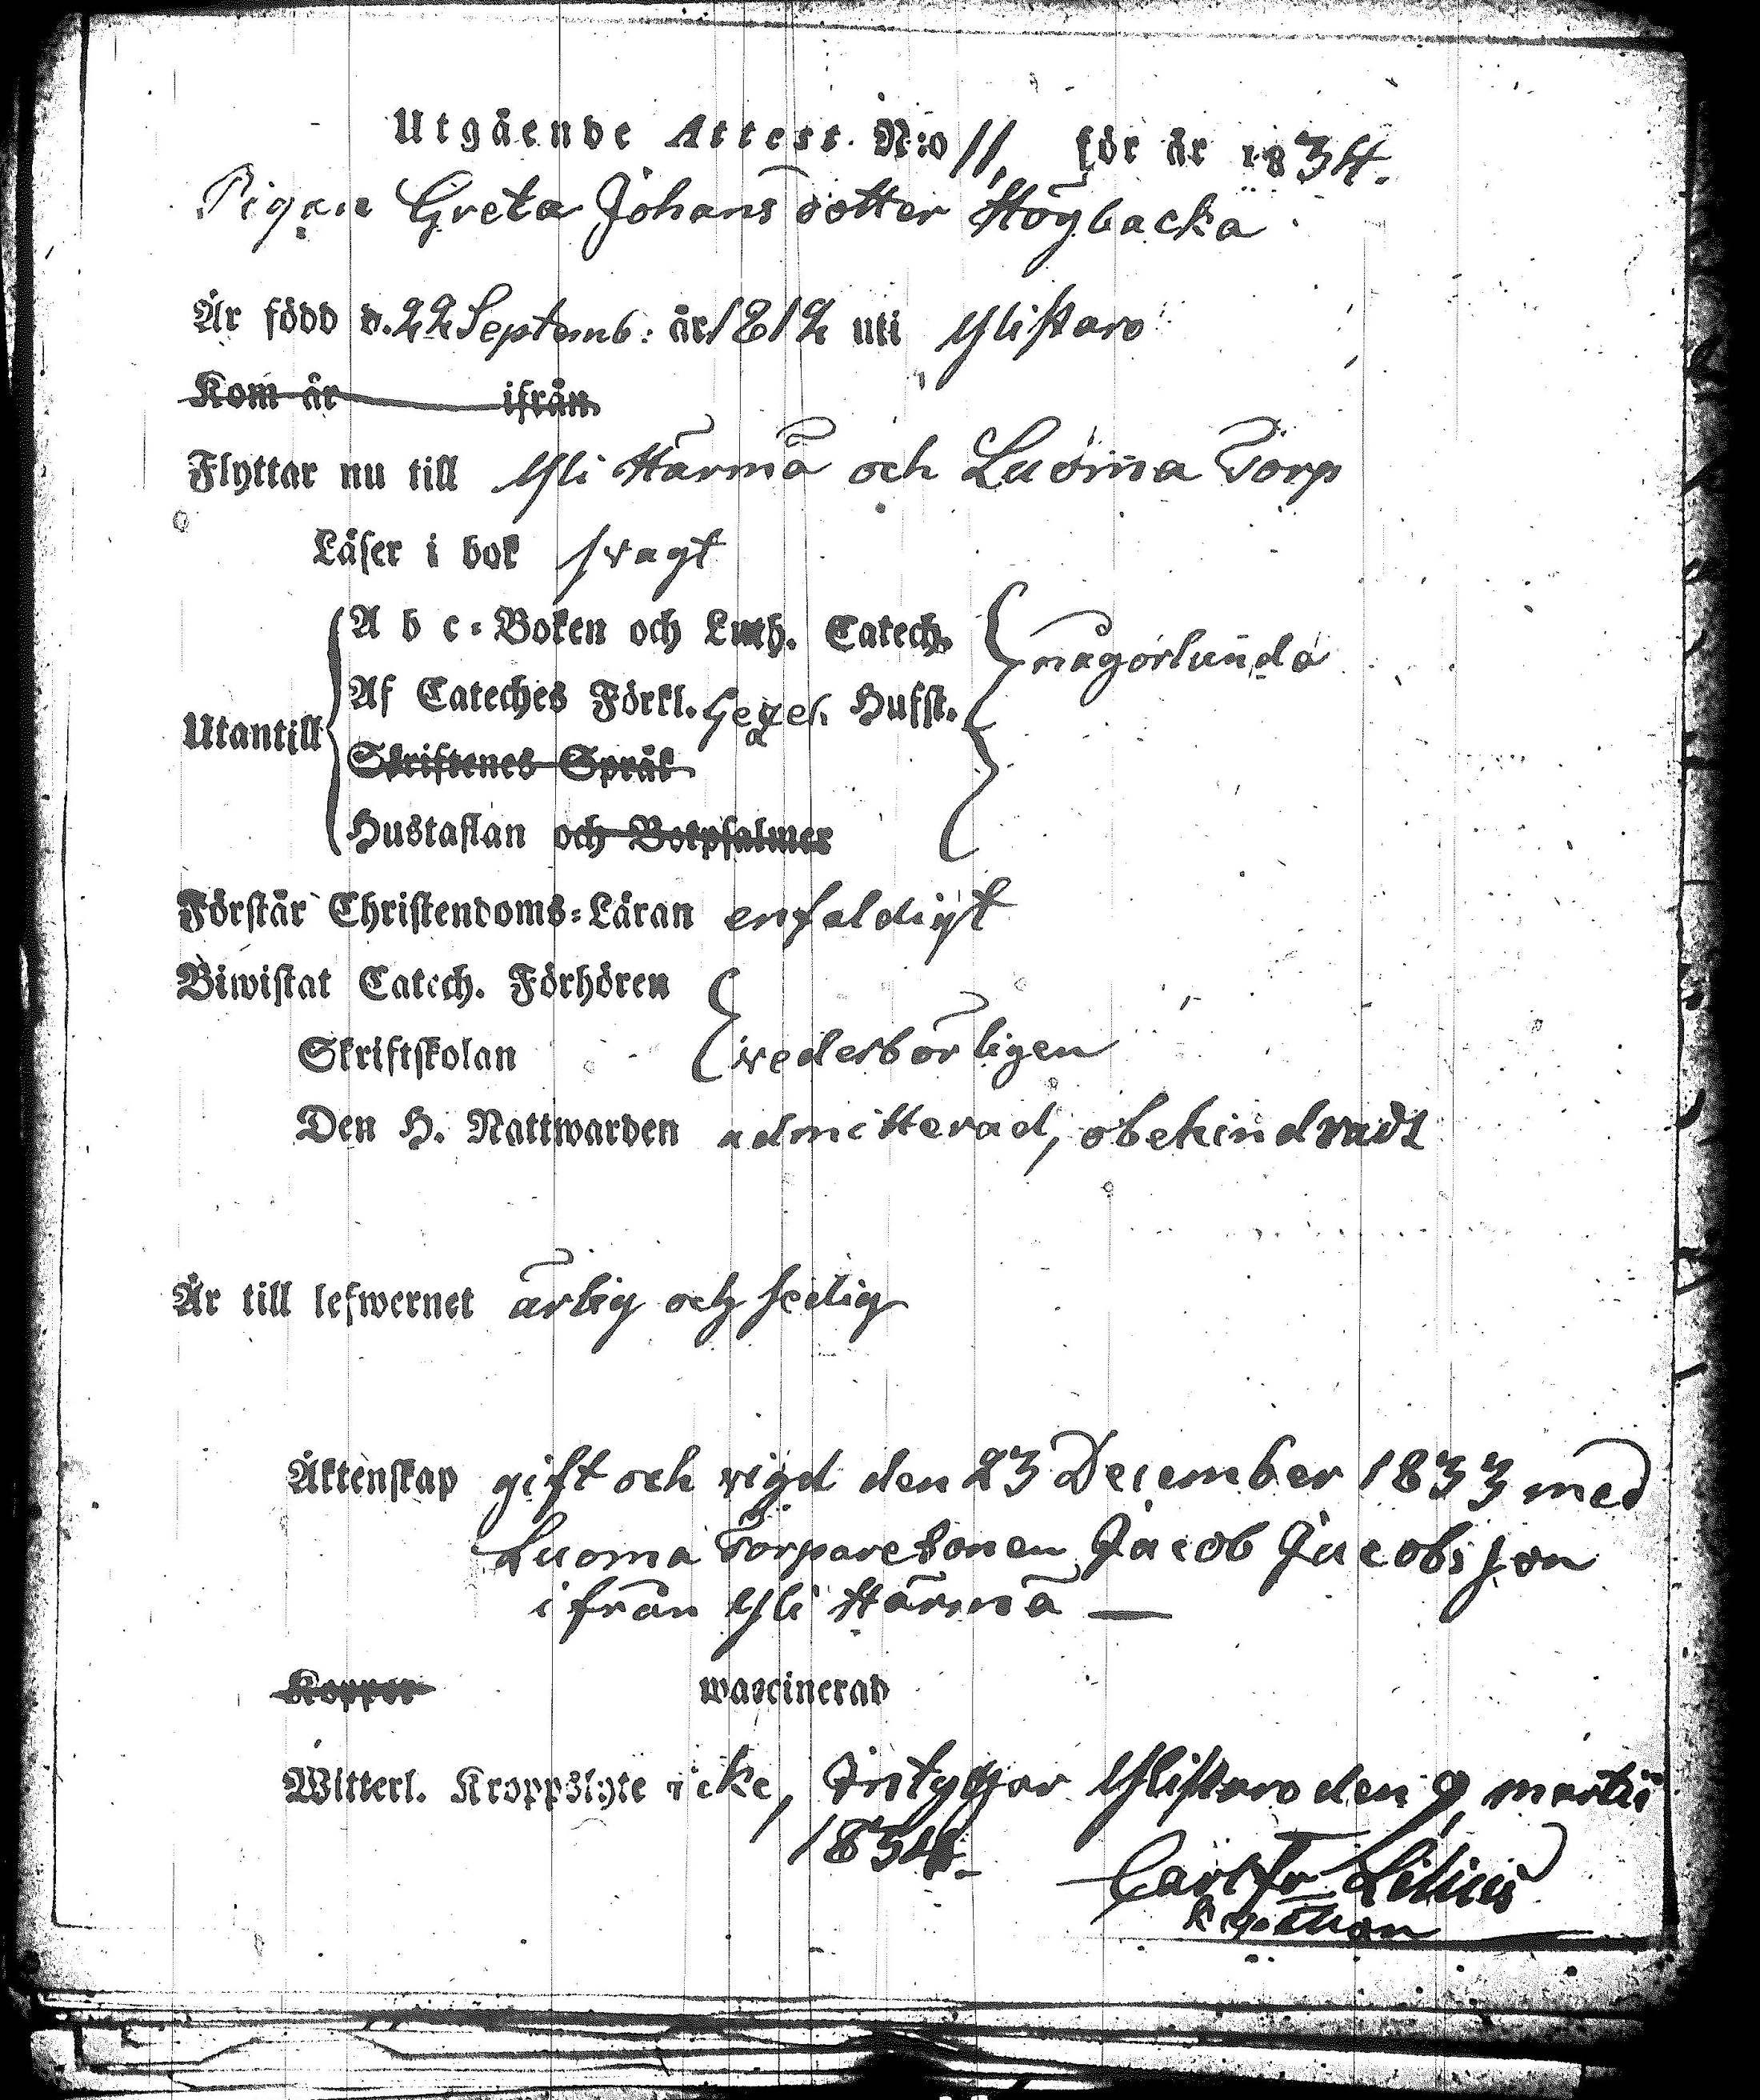 Utgående Attest. N:o 11, för år 1834.
Pigan Greta Johans dotter Högbacka
Är född d. 22 Septemb: år 1812 uti Ylistaro
Kom år ifrån
Flyttar nu till Yli Härmä och Luoma Torp
Läser i bok svagt
A b c-Boken och Luth. Catech.
någorlunda
Af Cateches Förkl. Husst.
Utantill
Skriftenes Språk
Hustaflan och Botpsalmer
Förstår Christendoms-Läran enfaldigt
Biwistat Catech. Förhören
Skriftskolan vederbörligen
Den H. Nattwarden admitterad, obehindradt
Är till lefwernet ärlig och sedig
Äktenskap gift och vigd den 23 December 1833 med
Luoma Torparesonen Jacob Jacobsson
ifrån Yli Härmä —
Koppor waccinerad
Witterl. Kroppslyte icke, Intygar Ylistaro den 9 martii
1834.
Carl Fr Lilius